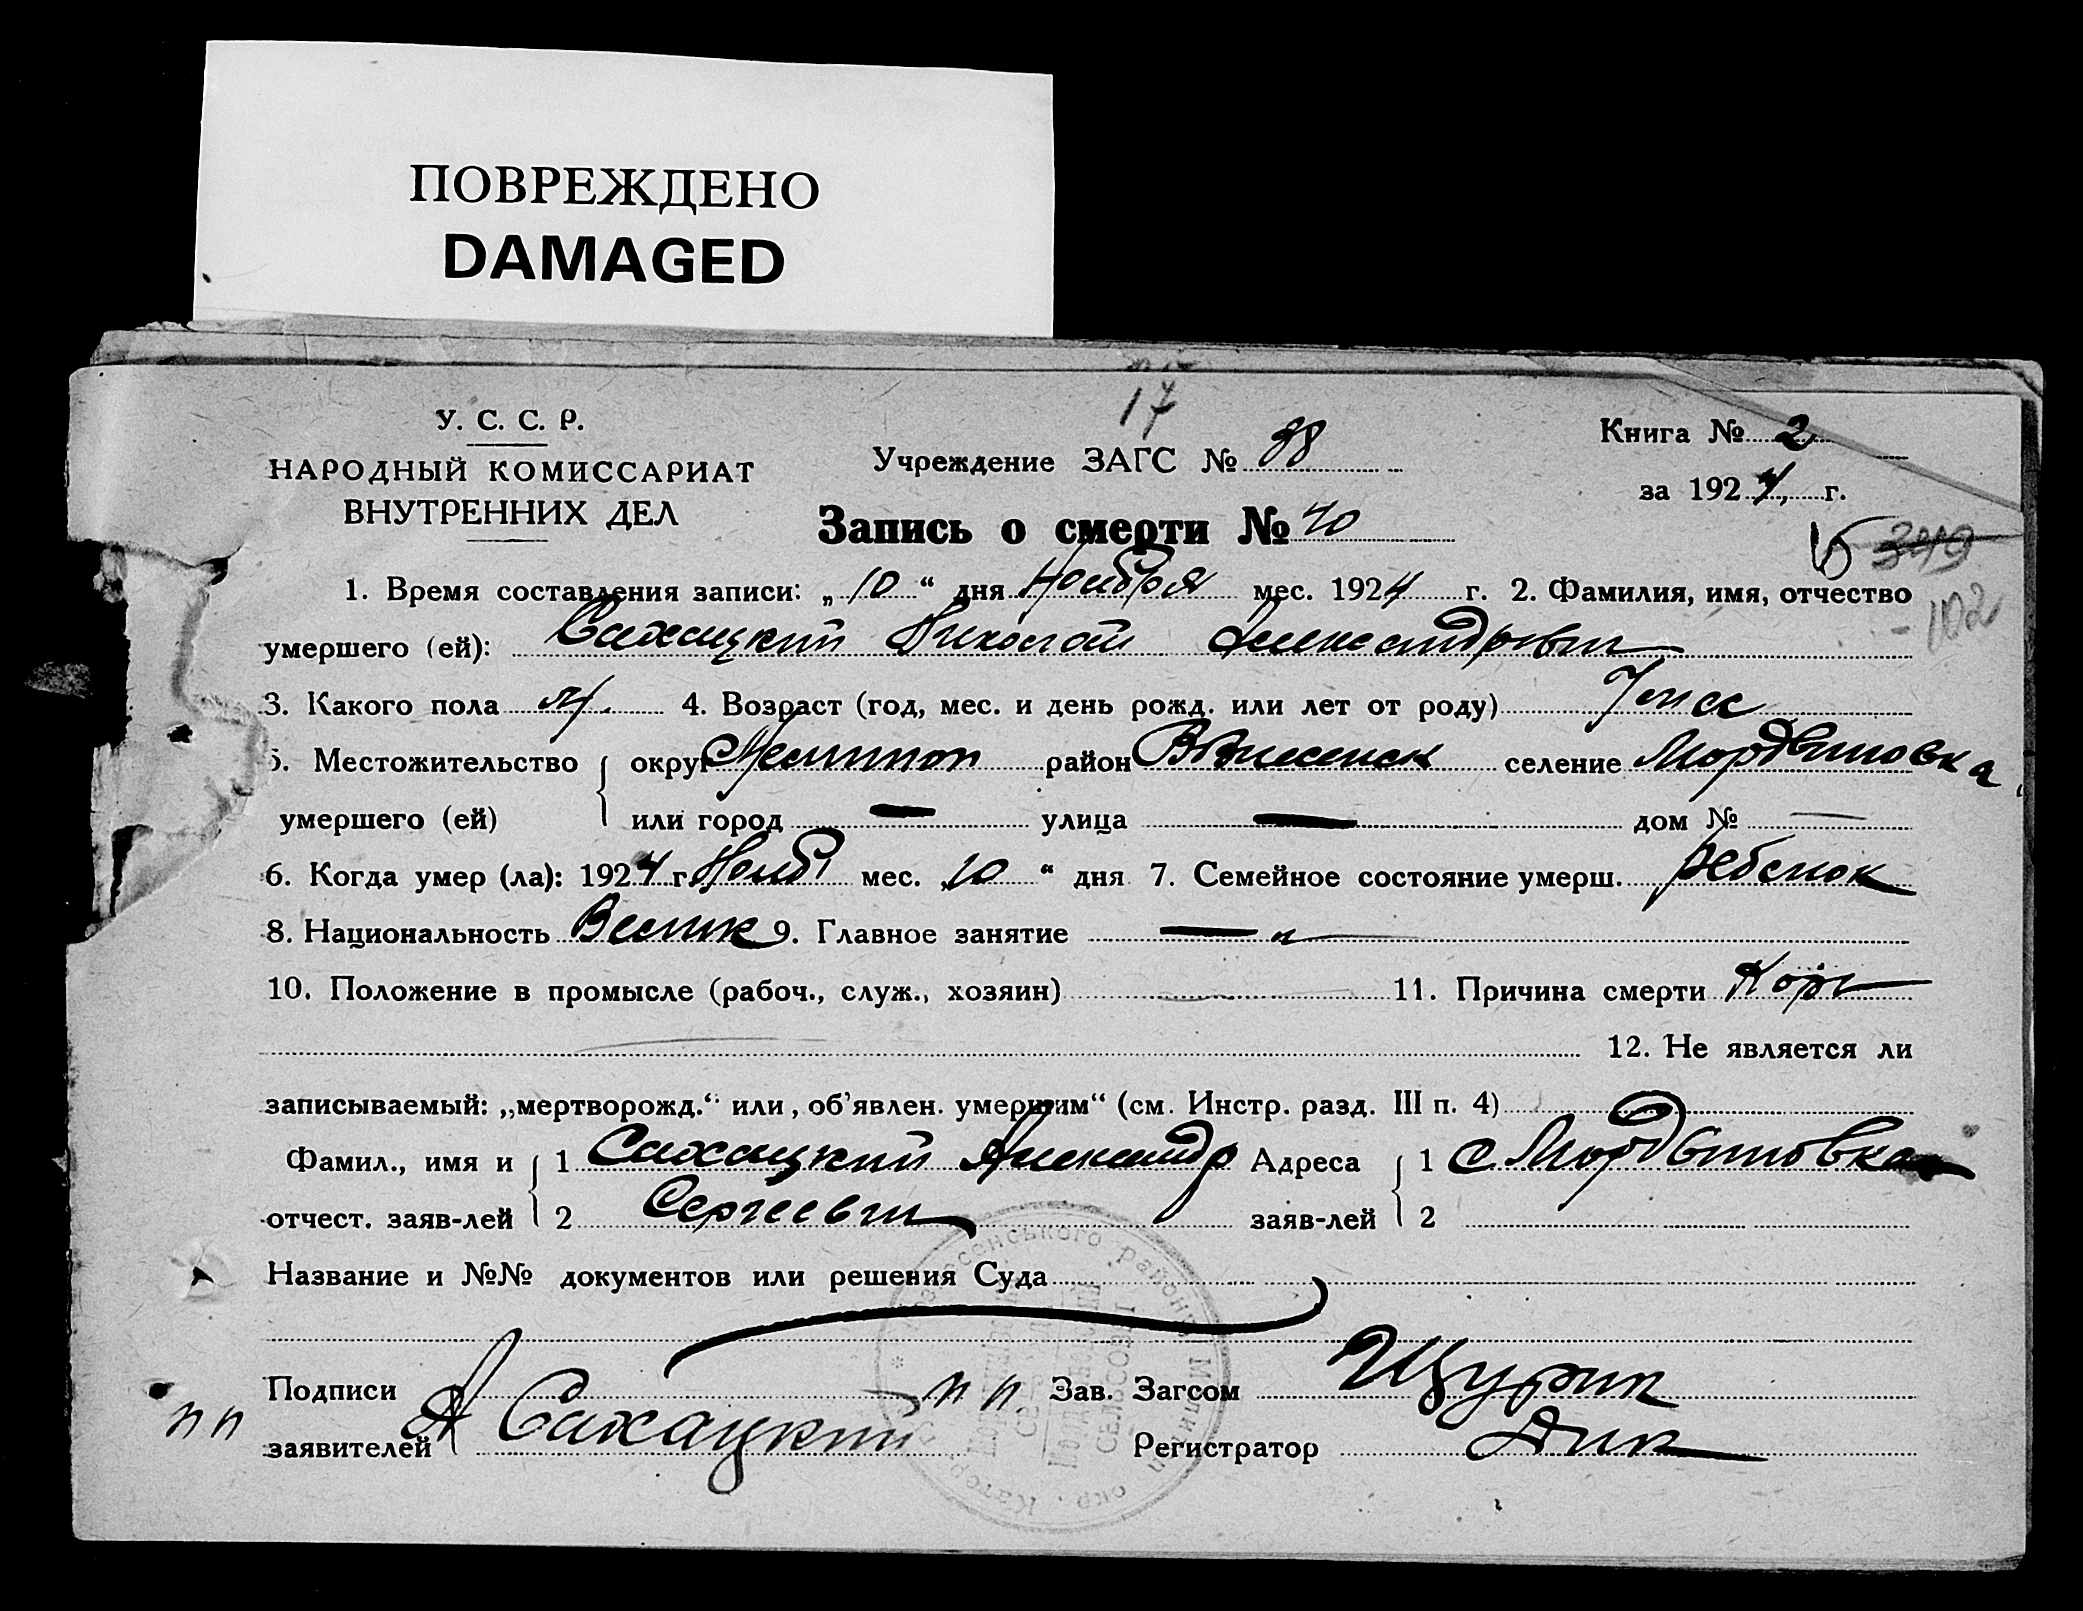 ПОВРЕЖДЕНО
DAMAGED
17
У. С. С. Р.
НАРОДНЫЙ КОМИССАРИАТ
ВНУТРЕННИХ ДЕЛ
Учреждение ЗАГС № 38
Книга № 2
за 1924 г.
Запись о смерти № 40
349
102
1. Время составления записи: „10“ дня Ноября мес. 1924 г. 2. Фамилия, имя, отчество
умершего (ей): Сахацкий Николай Александрович
3. Какого пола м. 4. Возраст (год, мес. и день рожд. или лет от роду)
5. Местожительство округ Мелитоп район Вознесенск селение Мордвиновка
умершего (ей) или город — улица — дом № —
6. Когда умер (ла): 1924 г. Нояб мес. „10“ дня 7. Семейное состояние умерш. ребенок
8. Национальность 9. Главное занятие —
10. Положение в промысле (рабоч., служ., хозяин) 11. Причина смерти Корь
12. Не является ли
записываемый: „мертворожд.“ или „об'явлен. умершим“ (см. Инстр. разд. III п. 4)
Фамил., имя и 1 Сахацкий Александр Адреса 1 с. Мордвиновка
отчест. заяв-лей 2 Сергеевич заяв-лей 2
Название и №№ документов или решения Суда
Подписи пп. Зав. Загсом Щурик
пп заявителей А Сахацкий Регистратор Дик